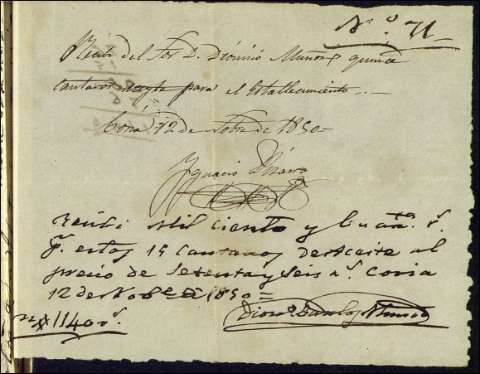 N.º 71
Recivi del Sor D. Dionisio Muñoz quince
cantaros para el establecimiento
Coria 12 de de 1850
Ygnacio
Recivi Mil ciento y r.s
p.r estos 15 Cantaros de Aceite al
precio de Setenta y Seis r.s Coria
12 de Nobe de 1850
Dion.o Muñoz
1140 r.s